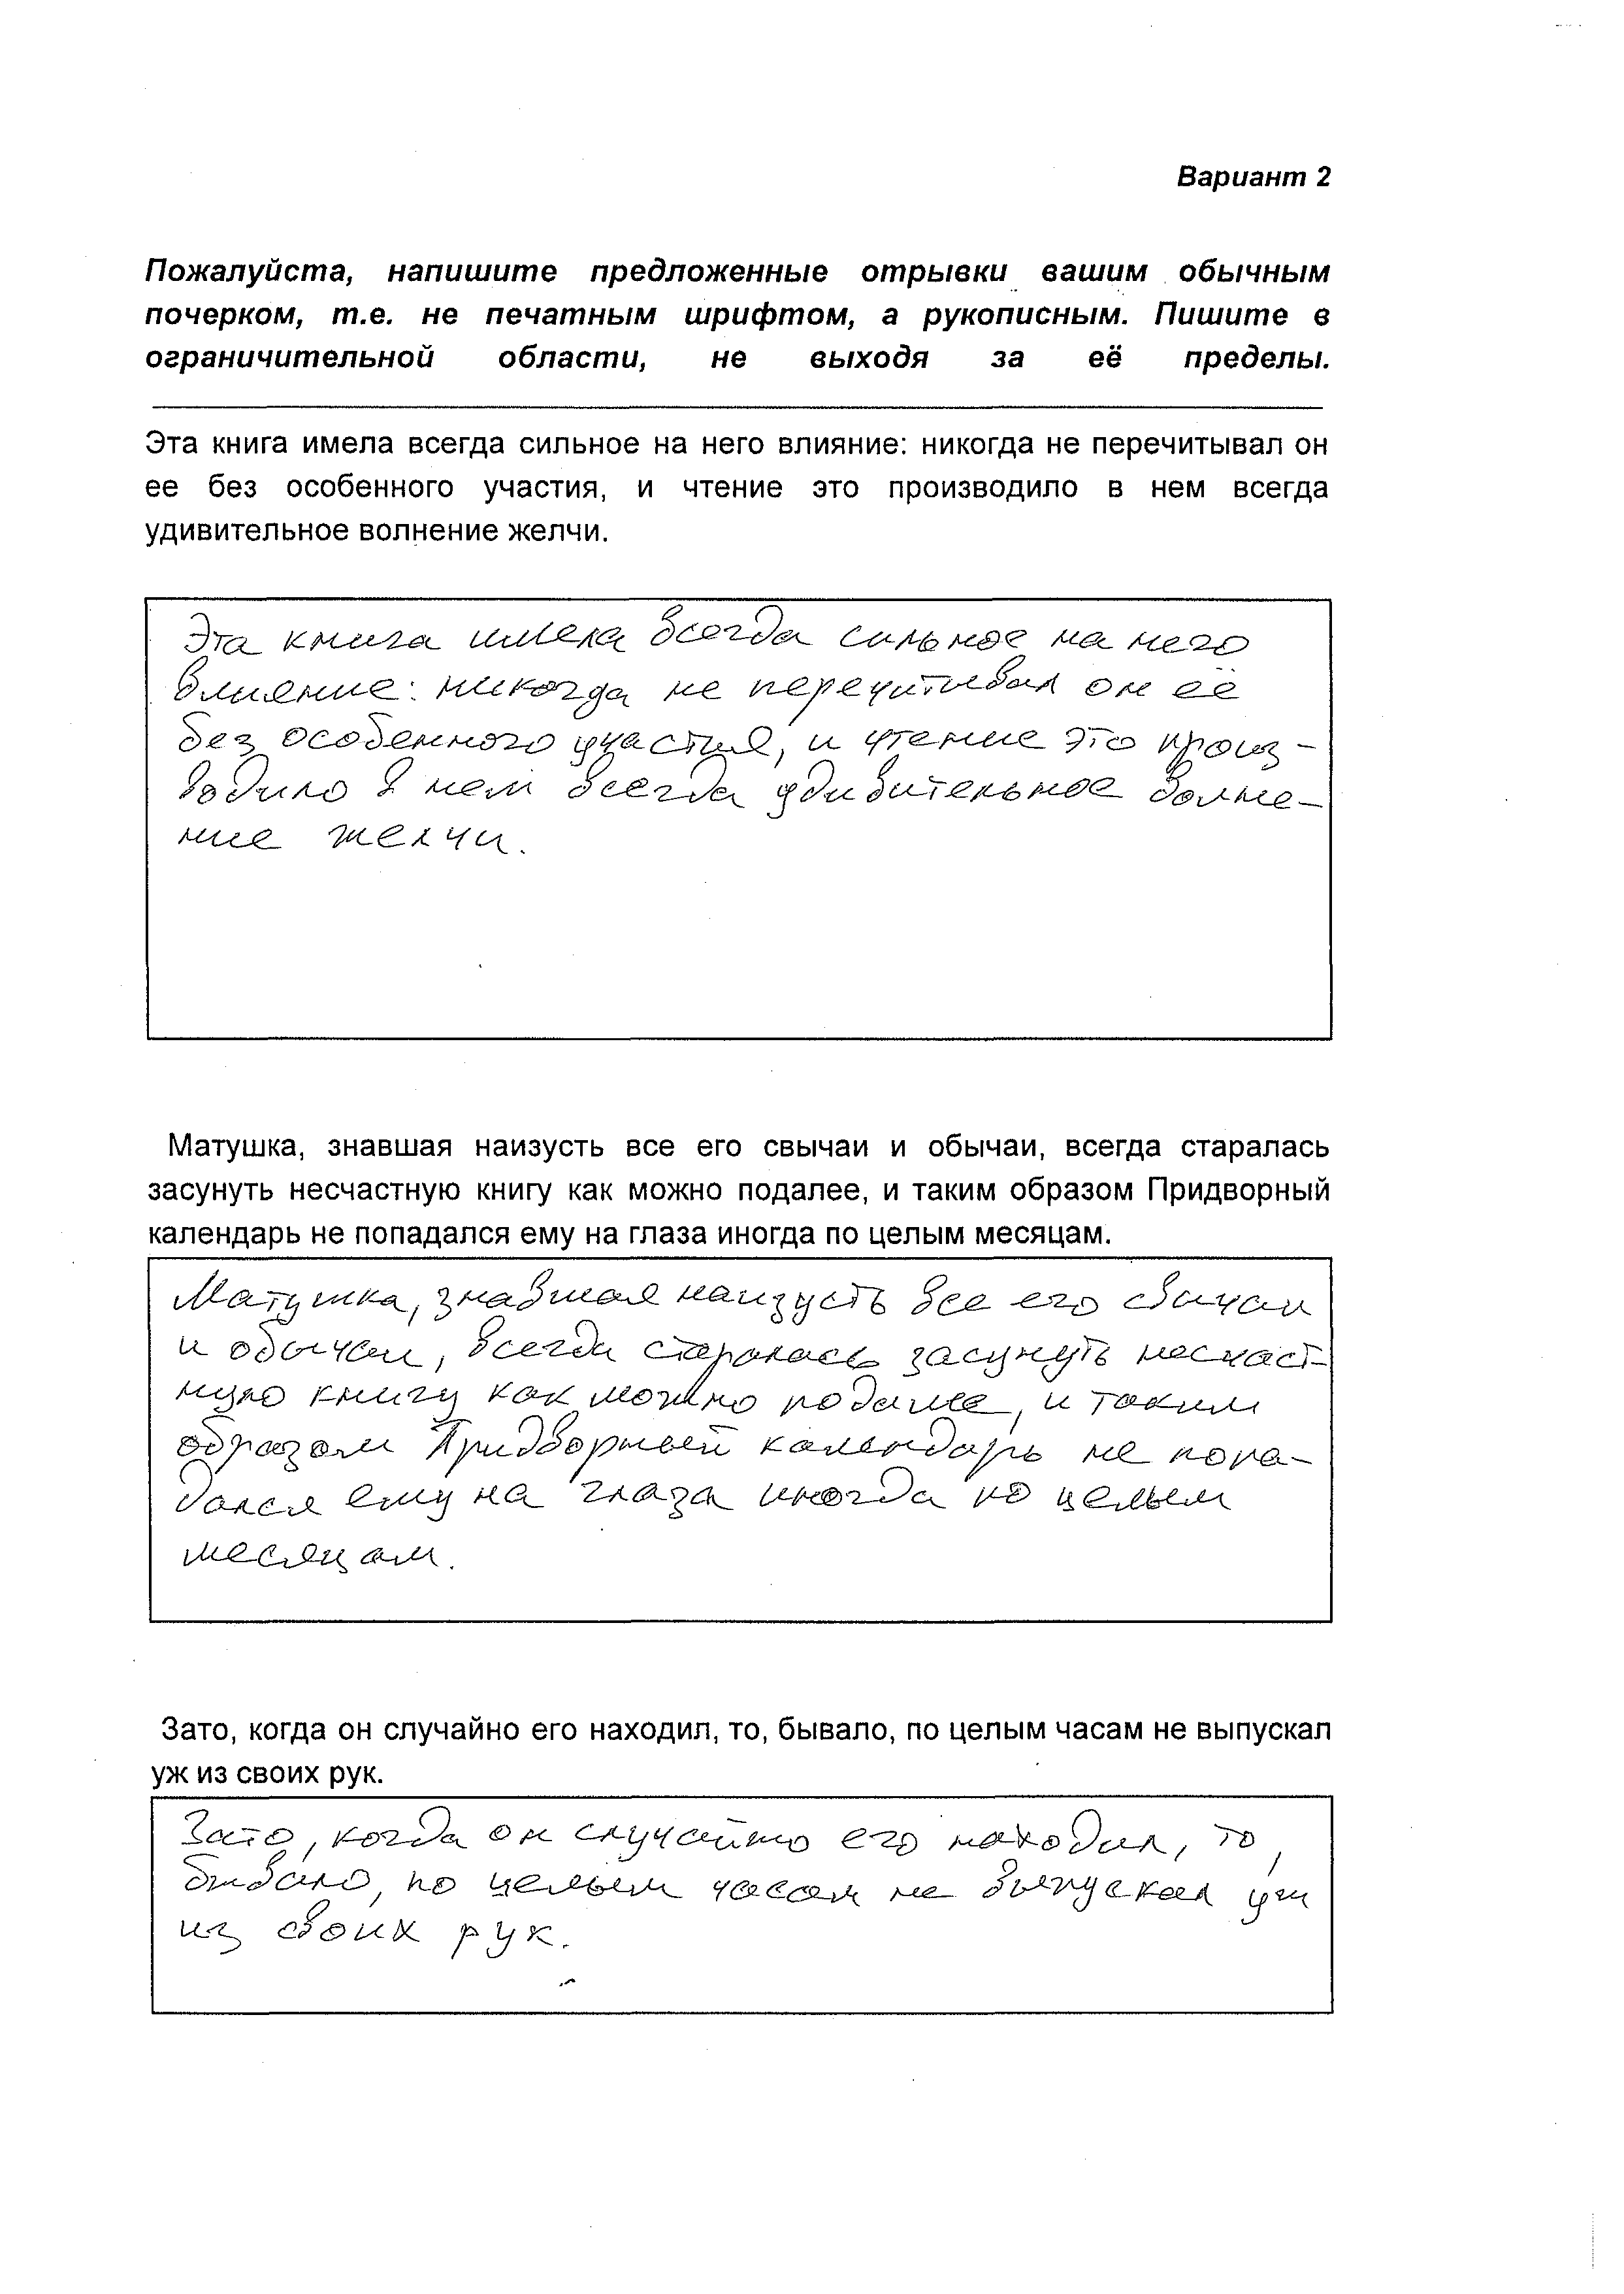 Вариант 2
Пожалуйста, напишите предложенные отрывки вашим обычным
почерком, т.е. не печатным шрифтом, а рукописным. Пишите в
ограничительной области, не выходя за её пределы.
Эта книга имела всегда сильное на него влияние: никогда не перечитывал он
ее без особенного участия, и чтение это производило в нем всегда
удивительное волнение желчи.
Эта книга имела всегда сильное на него
влияние: никогда не перечитывал он её
без особенного участия, и чтение это произ-
водило в нем всегда удивительное волне-
ние желчи.
Матушка, знавшая наизусть все его свычаи и обычаи, всегда старалась
засунуть несчастную книгу как можно подалее, и таким образом Придворный
календарь не попадался ему на глаза иногда по целым месяцам.
Матушка, знавшая наизусть все его свычаи
и обычаи, всегда старалась засунуть несчаст-
ную книгу как можно подалее, и таким
образом Придворный календарь не попа-
дался ему на глаза иногда по целым
месяцам.
Зато, когда он случайно его находил, то, бывало, по целым часам не выпускал
уж из своих рук.
Зато, когда он случайно его находил, то,
бывало, по целым часам не выпускал уж
из своих рук.